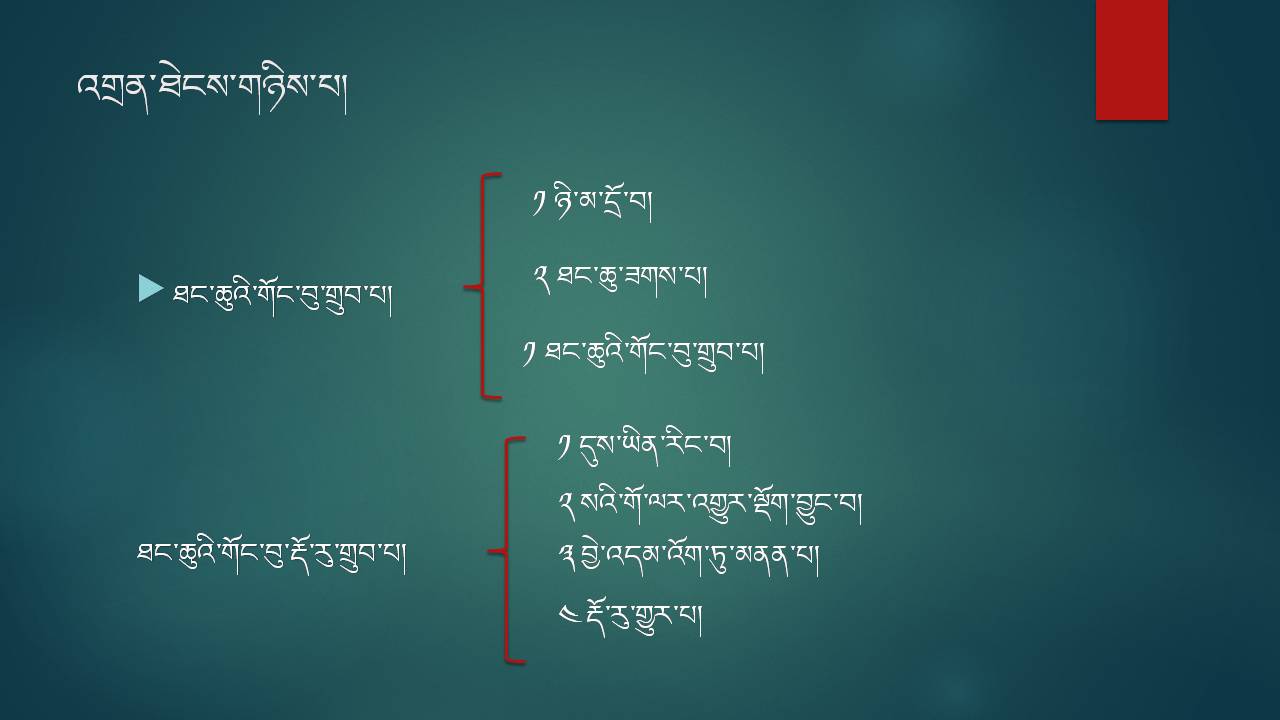 འགྲན་ཐེངས་གཉིས་པ།
ཐང་ཆུའི་གོང་བུ་གྲུབ་པ།
༡ ཉི་མ་དྲོ་བ།
༢ ཐང་ཆུ་ཟགས་པ།
༡ ཐང་ཆུའི་གོང་བུ་གྲུབ་པ།
ཐང་ཆུའི་གོང་བུ་རྡོ་རུ་གྲུབ་པ།
༡ དུས་ཡིན་རིང་བ།
༢ སའི་གོ་ལར་འགྱུར་ལྡོག་བྱུང་བ།
༣ བྱེ་འདམ་འོག་ཏུ་མནན་པ།
༤ རྡོ་རུ་གྱུར་པ།